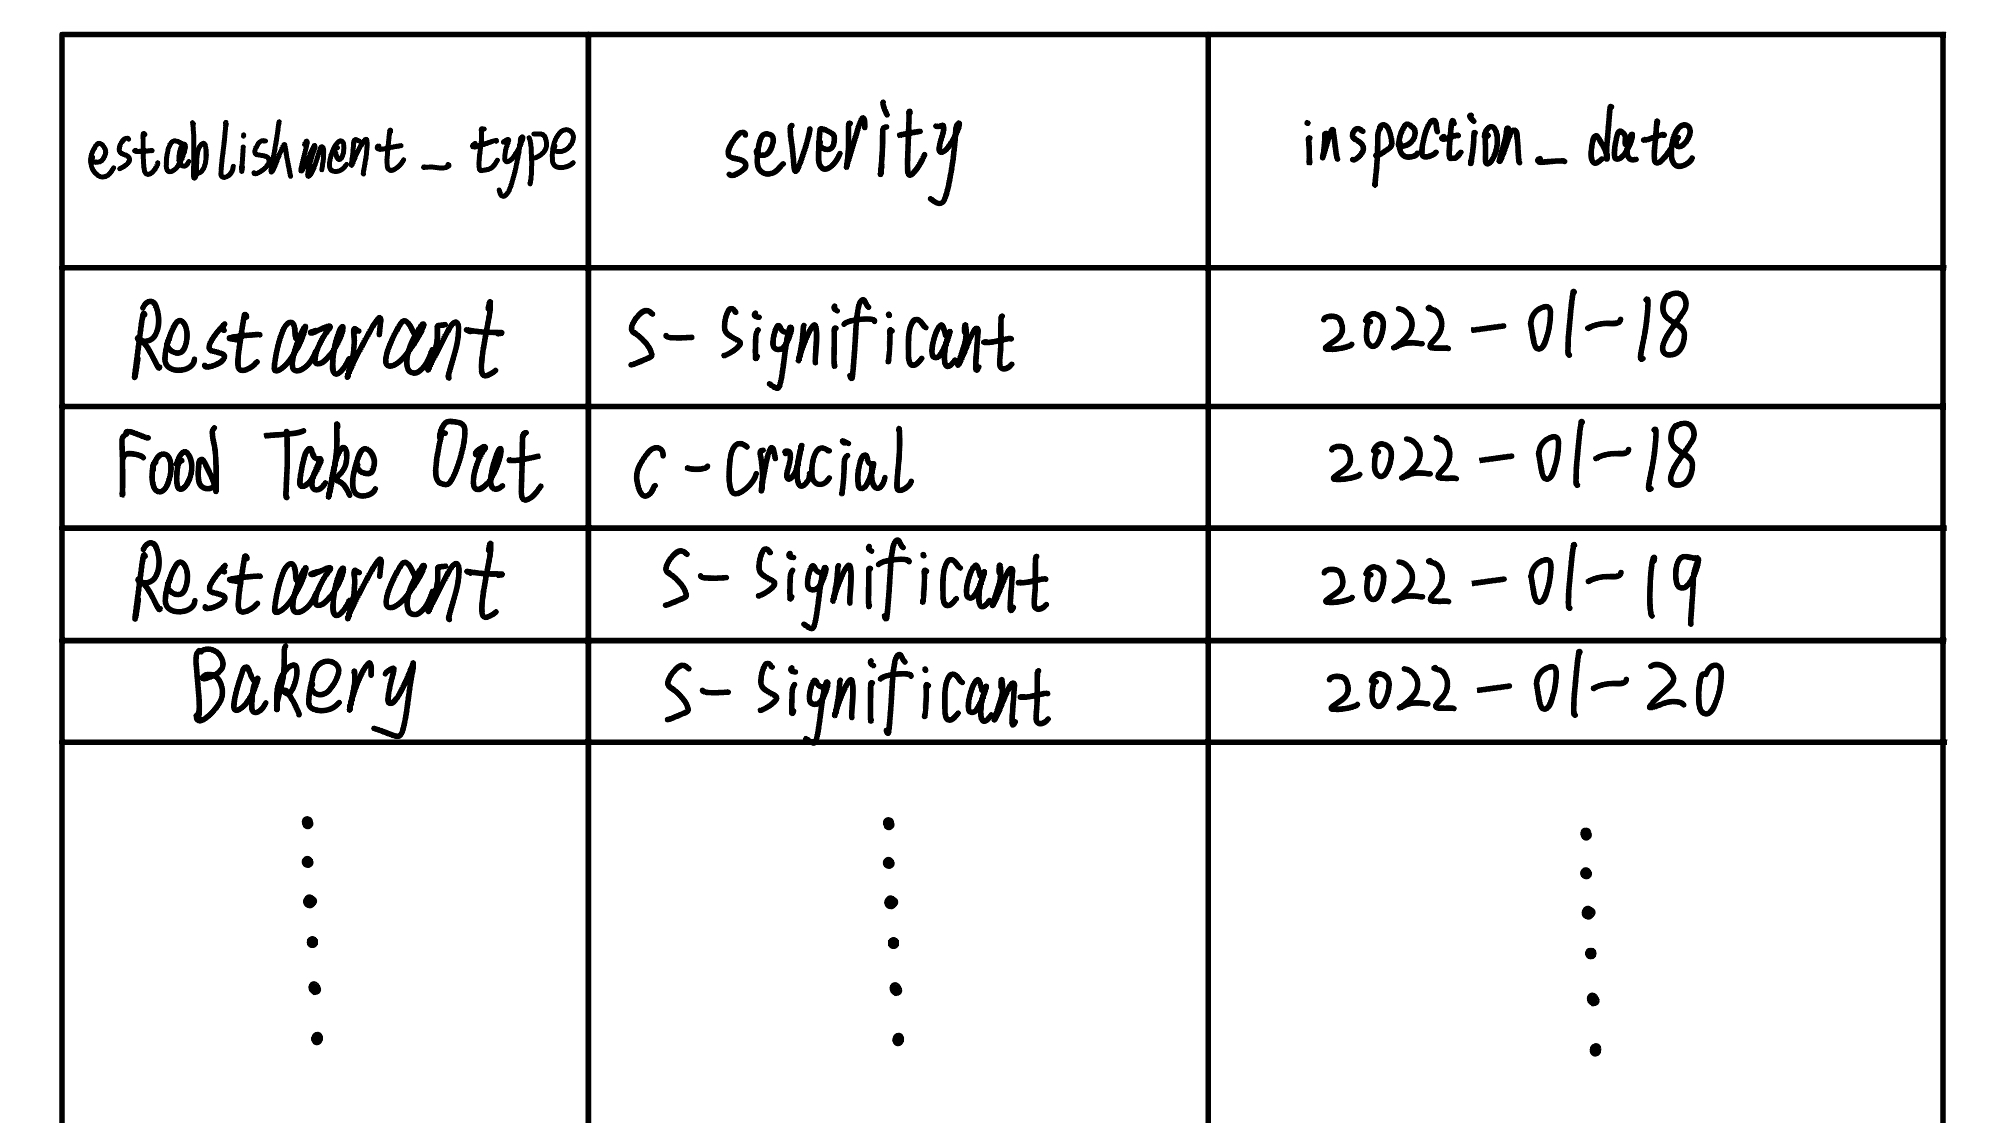 establishment_type severity inspection_date
Restaurant S-Significant 2022-01-18
Food Take Out C-Crucial 2022-01-18
Restaurant S-Significant 2022-01-19
Bakery S-Significant 2022-01-20